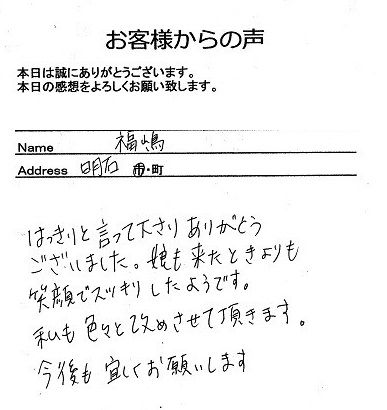 お客様からの声
本日は誠にありがとうございます。
本日の感想をよろしくお願い致します。
Name 福嶋
Address 明石 市・町
はっきりと言って下さりありがとう
ございました。娘も来たときよりも
笑顔でスッキリしたようです。
私も色々と改めさせて頂きます。
今後も宜しくお願いします